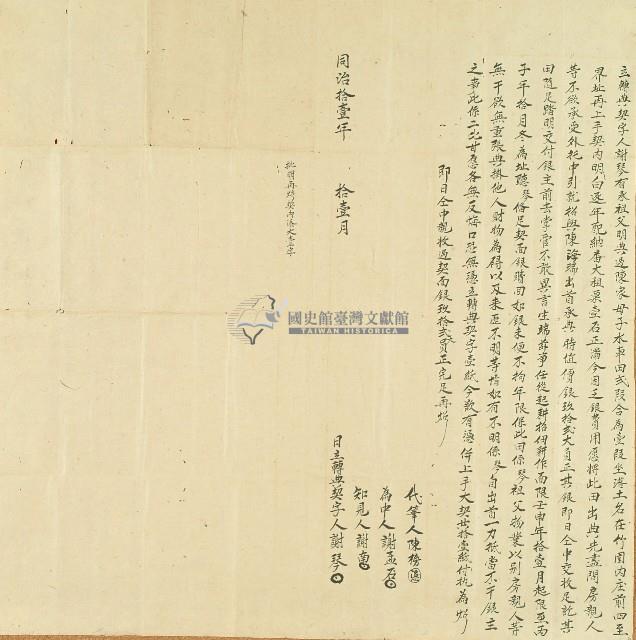 立轉典契字人謝琴有承祖父明典過陳家母子水車田弍段合為壹段坐落土名在竹圍內庄前四至
界址再上手契內明白逐年配納番大租粟壹石正滿今因乏銀費用愿將此田出典先盡問房親人
等不欲承受外托中引就招與陳海瑞出首承典時值價銀玖拾弍大員正其銀即日仝中交收足訖其
田隨足踏明交付銀主前去掌管不敢異言生端茲事任從起耕招佃耕作面限壬申年拾壹月起限至丙
子年拾月冬為址聽琴俻足契面銀贖回如銀未便不拘年限保此田係琴祖父物業以別房親人等
無干欲無重張典掛他人財物為碍以及来歷不明等情如有不明係琴自出首一力抵當不干銀主
之事此係二比甘愿各無反悔口恐無憑立轉典契字壹紙今欲有憑併上手大契共拾壹紙付执為炤
即日仝中親收過契面銀玖拾弍員正完足再炤
代筆人陳榜
為中人謝孟石
知見人謝
同治拾壹年 拾壹月 日立轉典契字人謝琴
批明再炤契內添
國史館臺灣文獻館
TAIWAN HISTORICA